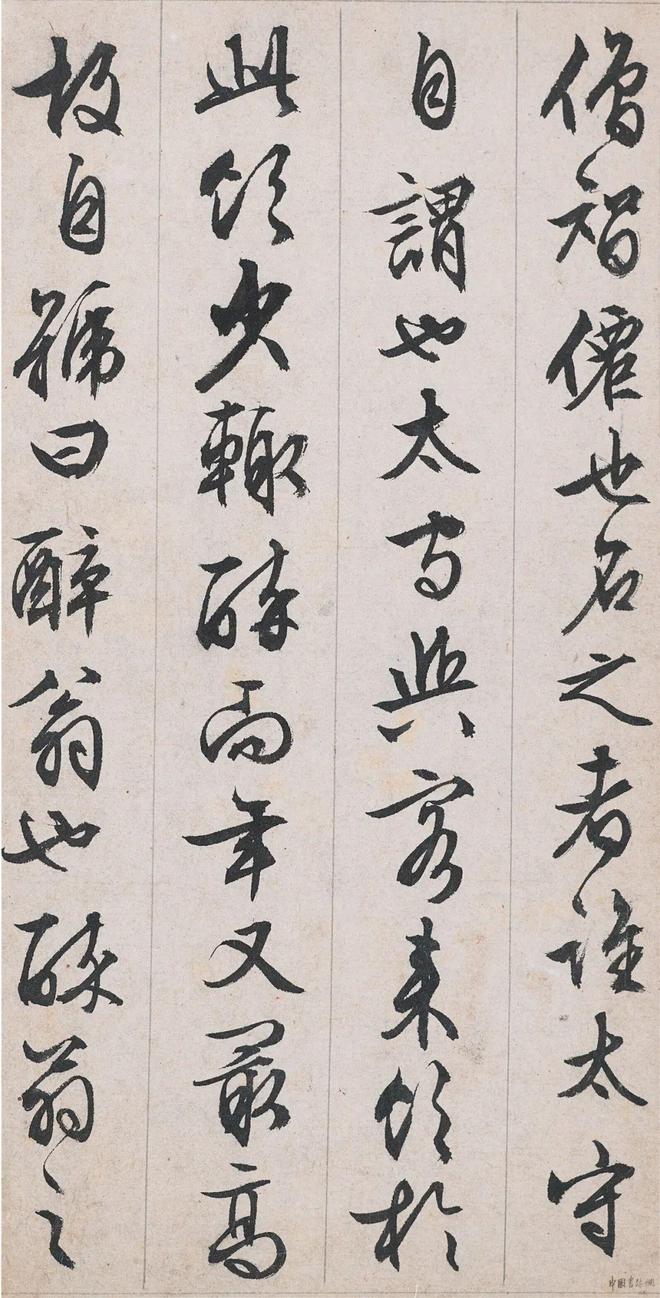 僧智僊也名之者誰太守
自謂也太守與客来飲於
此飲少輙醉而年又最高
故自號曰醉翁也醉翁之
中國書法網